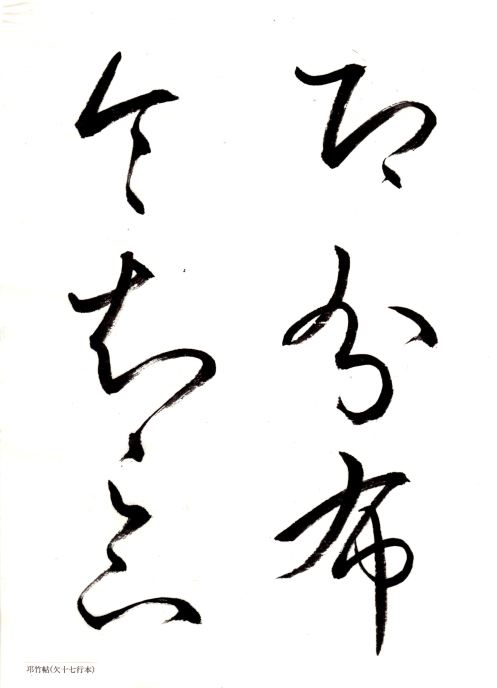 即分布
令知足
邛竹帖(欠十七行本)